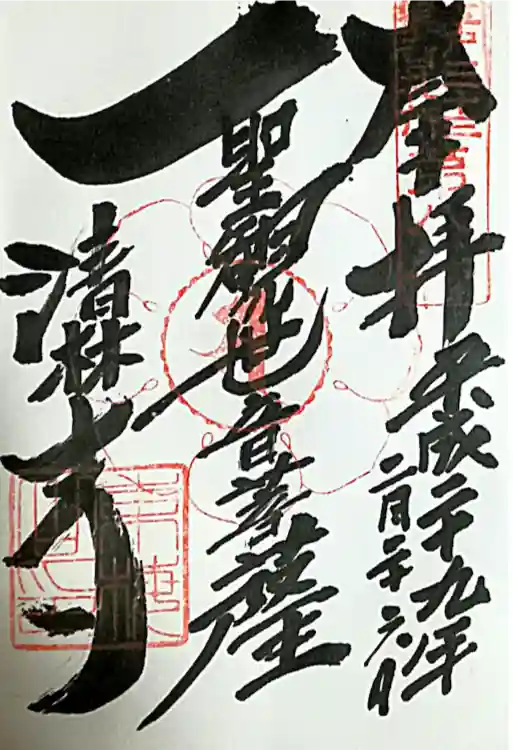 奉拝
平成二十九年
二月二十六日
聖観世音菩薩
清林寺